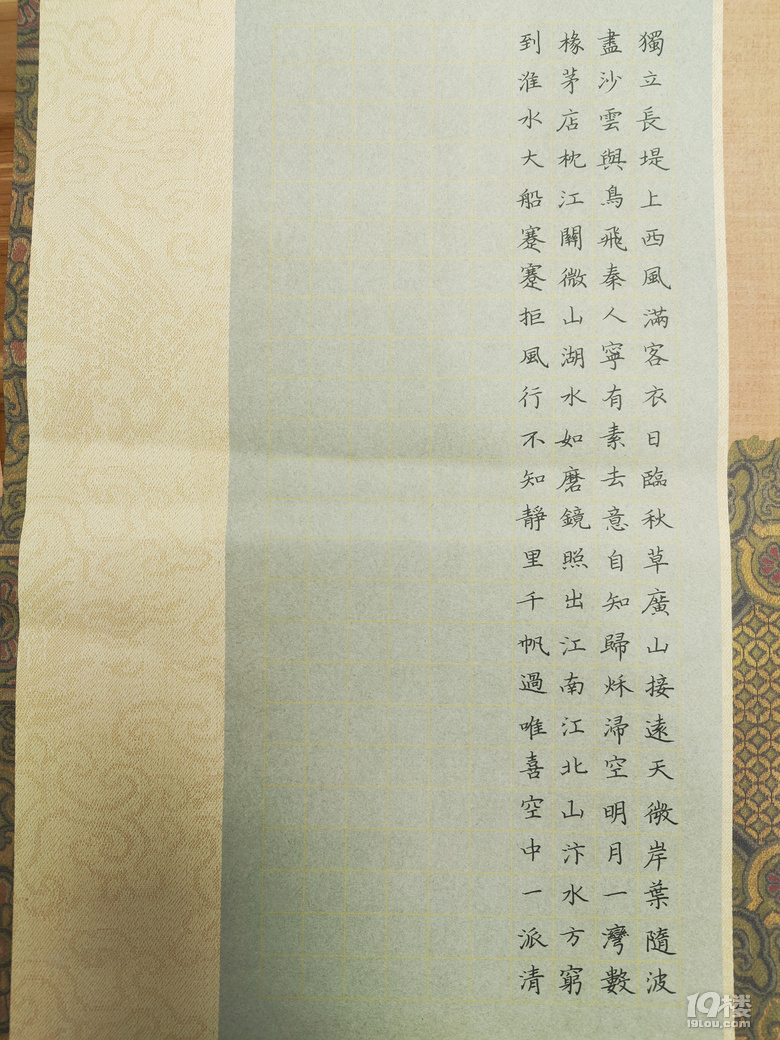 獨立長堤上西風滿客衣日臨秋草廣山接遠天微岸葉隨波
盡沙雲與鳥飛秦人寧有素去意自知歸秌浸空明月一灣數
椽茅店枕江關微山湖水如磨鏡照出江南江北山汴水方窮
到淮水大船蹇蹇拒風行不知靜里千帆過唯喜空中一派清
19楼
19lou.com